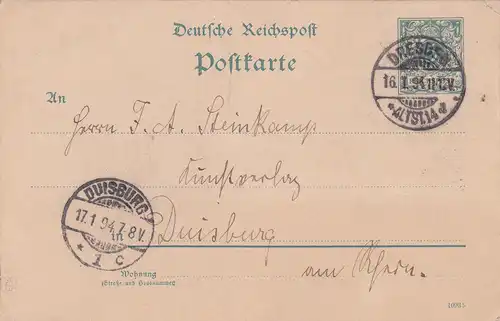 Deutsche Reichspost
Postkarte
DRESDEN
16.1.94 11-12.V.
* ALTST. 14 *
An
Herrn F. A. Steinkamp
Kunstverlag
DUISBURG
17.1.94. 7.8V.
* 1 c
in Duisburg
am Rhein.
Wohnung
(Straße und Hausnummer)